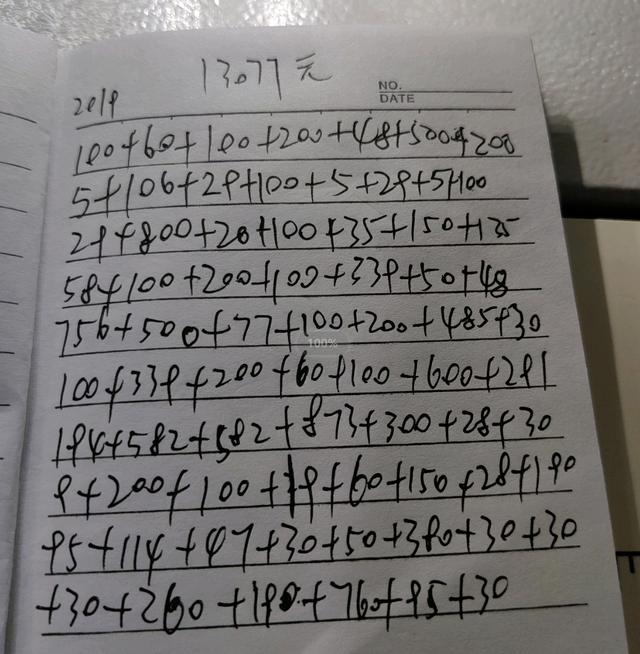 13077元
NO.
DATE
2019
100+60+100+200+48+500+200
5+106+29+100+5+29+5+100
29+800+20+100+35+150+135
58+100+200+100+339+50+48
756+500+77+100+200+485+30
100%
100+339+200+60+100+600+291
194+582+582+873+300+28+30
9+200+100+19+60+150+28+190
95+114+47+30+50+380+30+30
+30+260+190+760+95+30